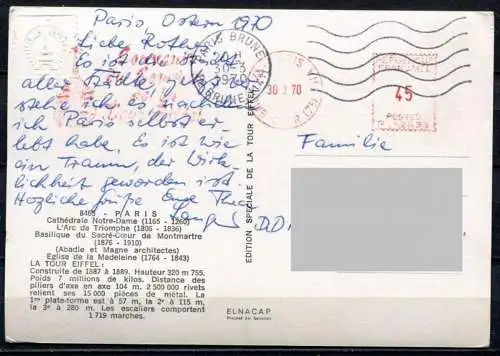 Paris, Ostern 1970
Liebe
Es ist die Stadt
aller Städte, ich
stehe ich es, nachdem
ich Paris selbst er-
lebt habe. Es ist wie
ein Traum, der Wirk-
lichkeit geworden ist.
Herzliche Grüße Eure
Familie
PARIS BRUNE
30-3
1970
30.3.70
REPUBLIQUE
FRANCAISE
45
POSTES
8465 - PARIS
Cathédrale Notre-Dame (1165 - 1260)
L'Arc de Triomphe (1806 - 1836)
Basilique du Sacré-Cœur de Montmartre
(1876 - 1910)
(Abadie et Magne architectes)
Eglise de la Madeleine (1764 - 1843)
LA TOUR EIFFEL:
Construite de 1887 à 1889. Hauteur 320 m 755.
Poids 7 millions de kilos. Distance des
piliers d'axe en axe 104 m. 2 500 000 rivets
relient ses 15 000 pièces de métal. La
1re plate-forme est à 57 m, la 2e à 115 m,
la 3e à 280 m. Les escaliers comportent
1 719 marches.
EDITION SPECIALE DE LA TOUR EIFFEL
ELNACAP